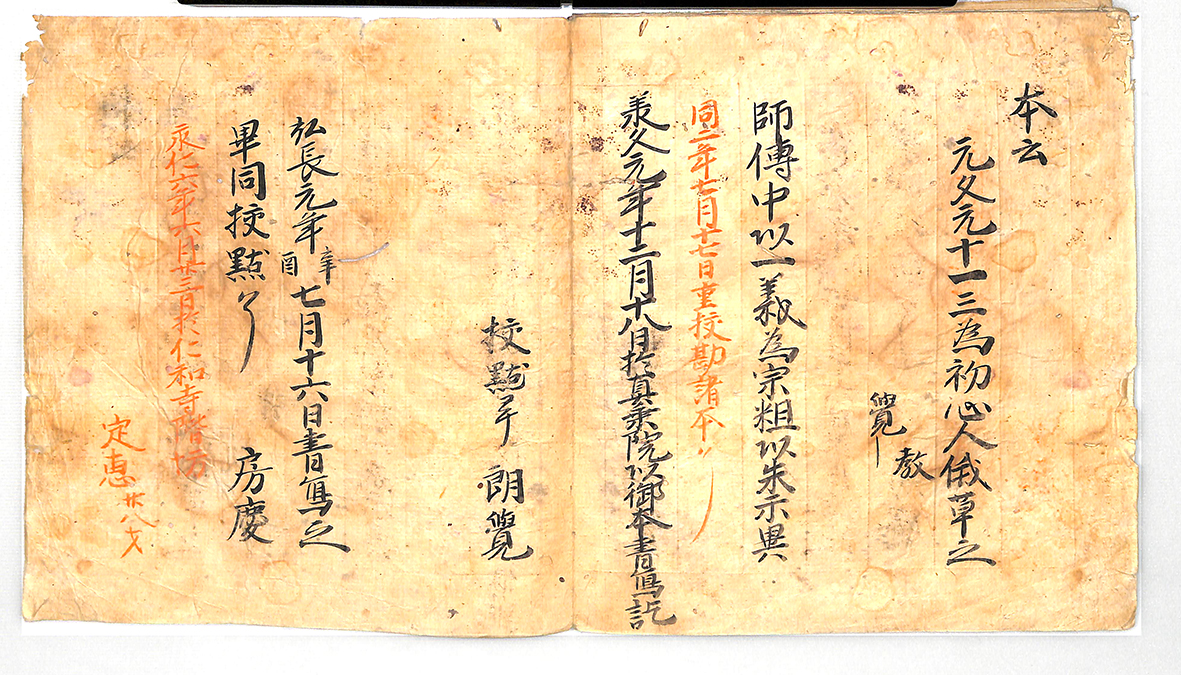 本云
元久元十一三為初心人俄草之
覺教
師傳中以一義為宗粗以朱示異
同二年七月十七日重挍勘諸本〃
承久元年十二月十八日於真乗院以御本書寫訖
挍點畢 朗覺
弘長元年辛酉七月十六日書寫之
畢同挍點了 房慶
永仁六年六月廿三日於仁和寺階坊
定恵廿八才